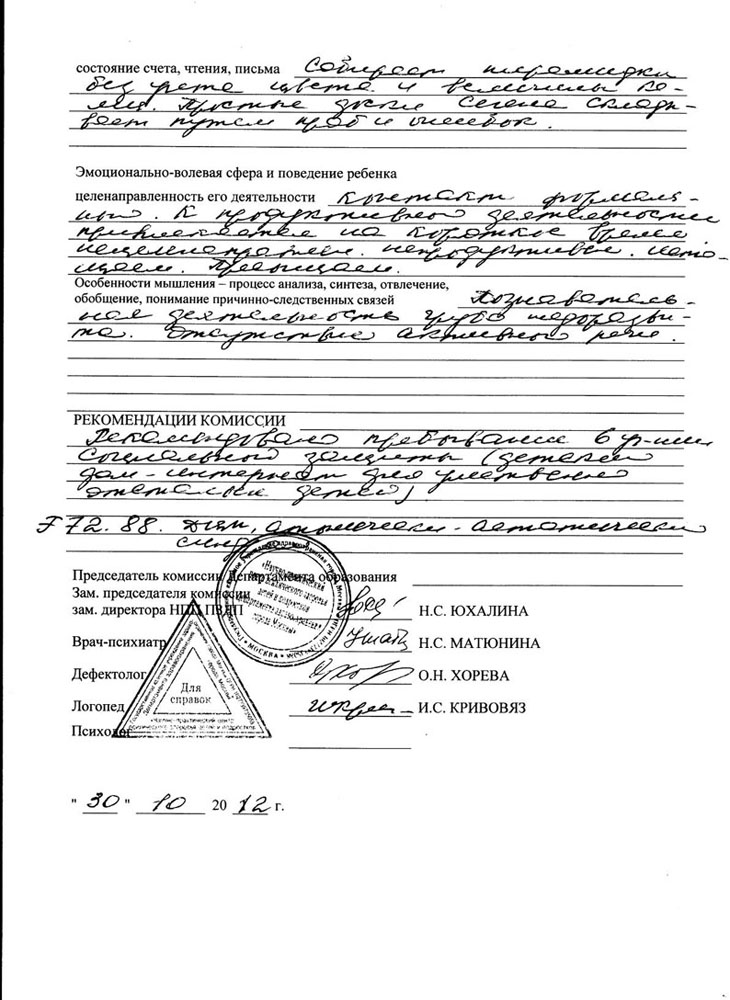 состояние счета, чтения, письма Собирает пирамидки
без учета цвета и величины ко-
лец. Простые доски Сегена склады-
вает путем проб и ошибок.
Эмоционально-волевая сфера и поведение ребенка
целенаправленность его деятельности Контакт формаль-
ный. К продуктивной деятельности
привлекается на короткое время.
нецеленаправлен. непродуктивен. исто-
щаем. Пресыщаем.
Особенности мышления – процесс анализа, синтеза, отвлечение,
обобщение, понимание причинно-следственных связей Познаватель-
ная деятельность грубо недоразви-
та. Отсутствие активной речи.
РЕКОМЕНДАЦИИ КОМИССИИ
Рекомендовано пребывание в уч-нии
социальной защиты (детский
дом-интернат для умственно
отсталых детей)
F 72. 88. ДЦП, атонически-астатический
синдром
Председатель комиссии Департамента образования
Зам. председателя комиссии
зам. директора НПЦ ПЗДП Н.С. ЮХАЛИНА
Врач-психиатр Н.С. МАТЮНИНА
Дефектолог О.Н. ХОРЕВА
Логопед И.С. КРИВОВЯЗ
Психолог
Для
справок
" 30 " 10 20 12 г.